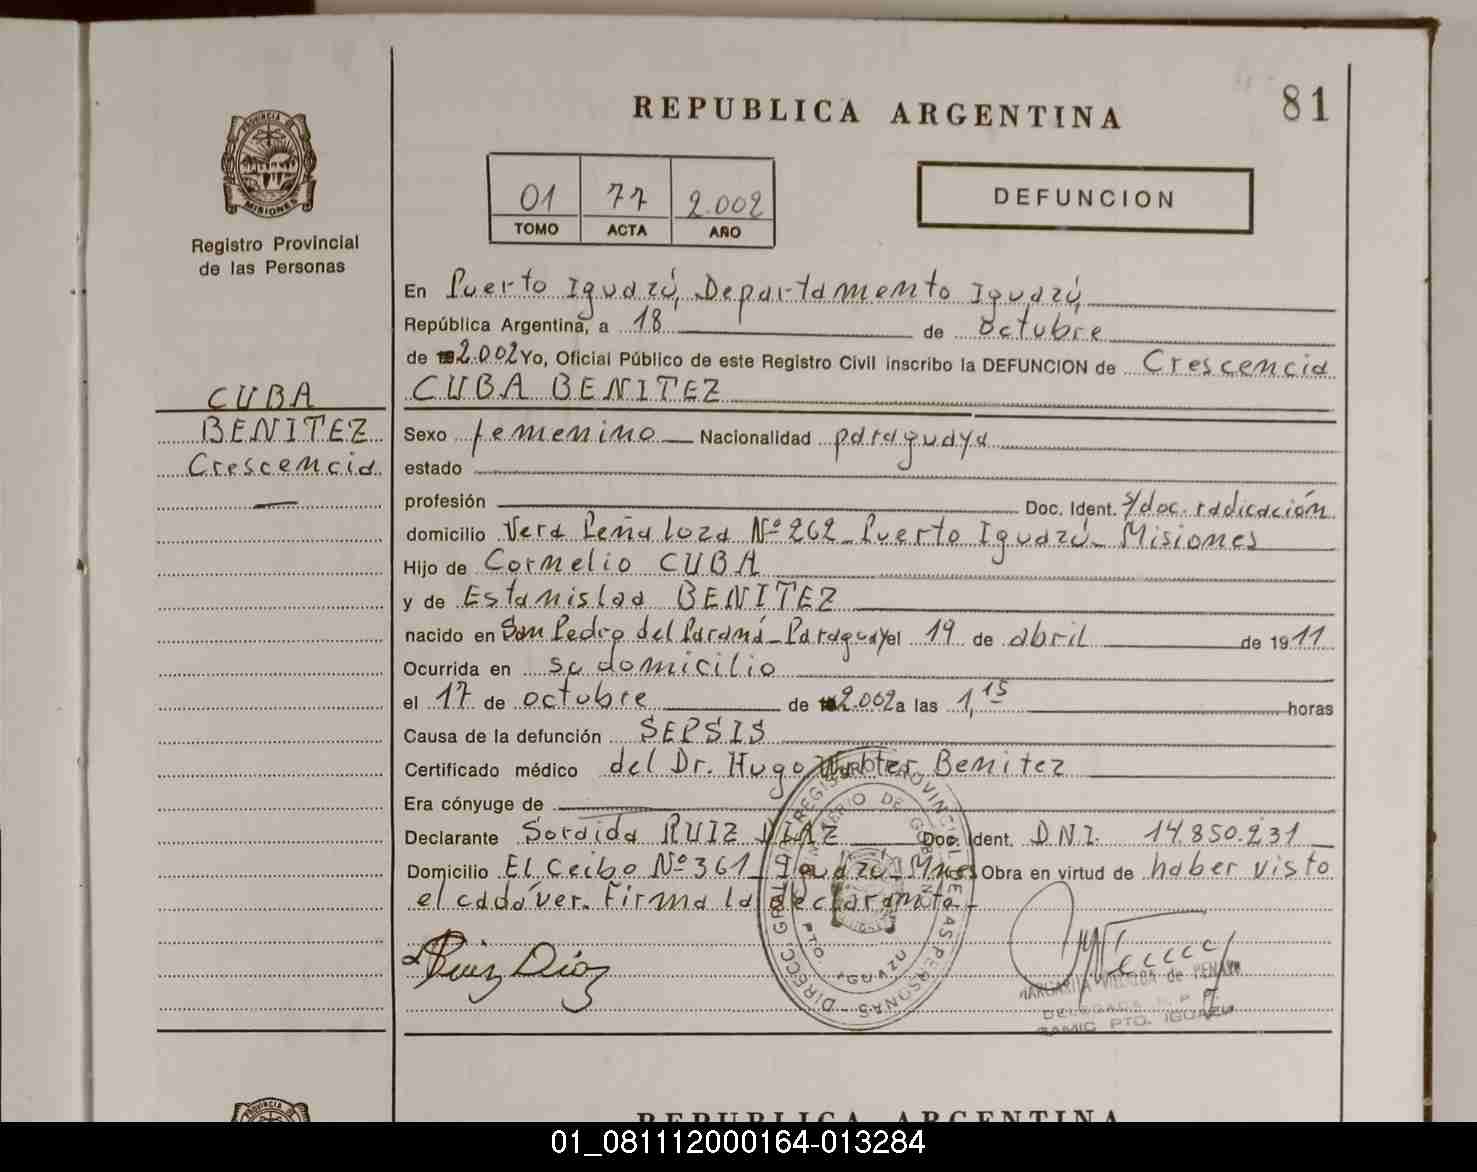 81
REPUBLICA ARGENTINA
PROVINCIA DE
MISIONES
Registro Provincial
de las Personas
01 77 2.002
TOMO ACTA AÑO
DEFUNCION
CUBA
BENITEZ
Crescencia
En Puerto Iguazú, Departamento Iguazú
República Argentina, a 18 de octubre
de 192.002 Yo, Oficial Público de este Registro Civil inscribo la DEFUNCION de Crescencia
CUBA BENITEZ
Sexo femenino Nacionalidad paraguaya
estado
profesión Doc. Ident. s/doc. radicación
domicilio Vera Peñaloza Nº 262 - Puerto Iguazú - Misiones
Hijo de Cornelio CUBA
y de Estanislaa BENITEZ
nacido en San Pedro del Paraná - Paraguay el 19 de abril de 1911
Ocurrida en su domicilio
el 17 de octubre de 192.002 a las 1,15 horas
Causa de la defunción SEPSIS
Certificado médico del Dr. Hugo Benitez
Era cónyuge de
Declarante RUIZ DIAZ Doc. Ident. D.N.I. 14.850.231
Domicilio El Ceibo Nº 361 - Iguazú - Mnes Obra en virtud de haber visto
el cadáver. Firma la declarante -
Ruiz Diaz
DIRECC. GRAL. REGISTRO PROVINCIAL DE LAS PERSONAS
MINISTERIO DE GOBIERNO
PTO. IGUAZU
MARGARITA de
DELEGADA R. P. P.
SAMIC PTO. IGUAZU
REPUBLICA ARGENTINA
01_081112000164-013284